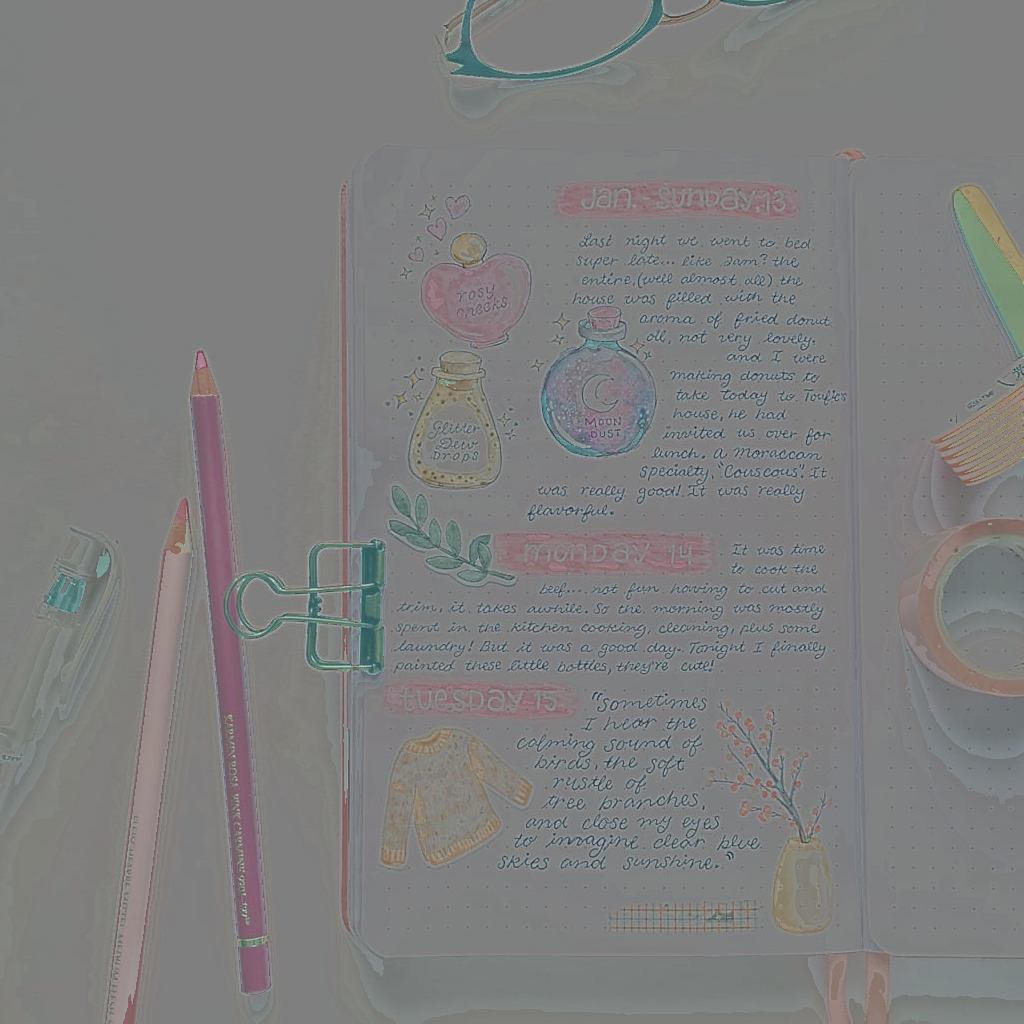 Jan. - Sunday, 13
Last night we went to bed
super late... like 2am? the
entire, (well almost all) the
house was filled with the
aroma of fried donut
oil, not very lovely.
and I were
making donuts to
take today to Toufic's
house, he had
invited us over for
lunch. A Moraccan
specialty, "Couscous". It
was really good! It was really
flavorful.
rosy
cheeks
MOON
DUST
Glitter
Dew
Drops
monday 14
It was time
to cook the
beef.... not fun having to cut and
trim, it takes awhile. So the morning was mostly
spent in the kitchen cooking, cleaning, plus some
laundry! But it was a good day. Tonight I finally
painted these little bottles, they're cute!
tuesday 15
"Sometimes
I hear the
calming sound of
birds, the soft
rustle of
tree branches,
and close my eyes
to invagine clear blue
skies and sunshine."